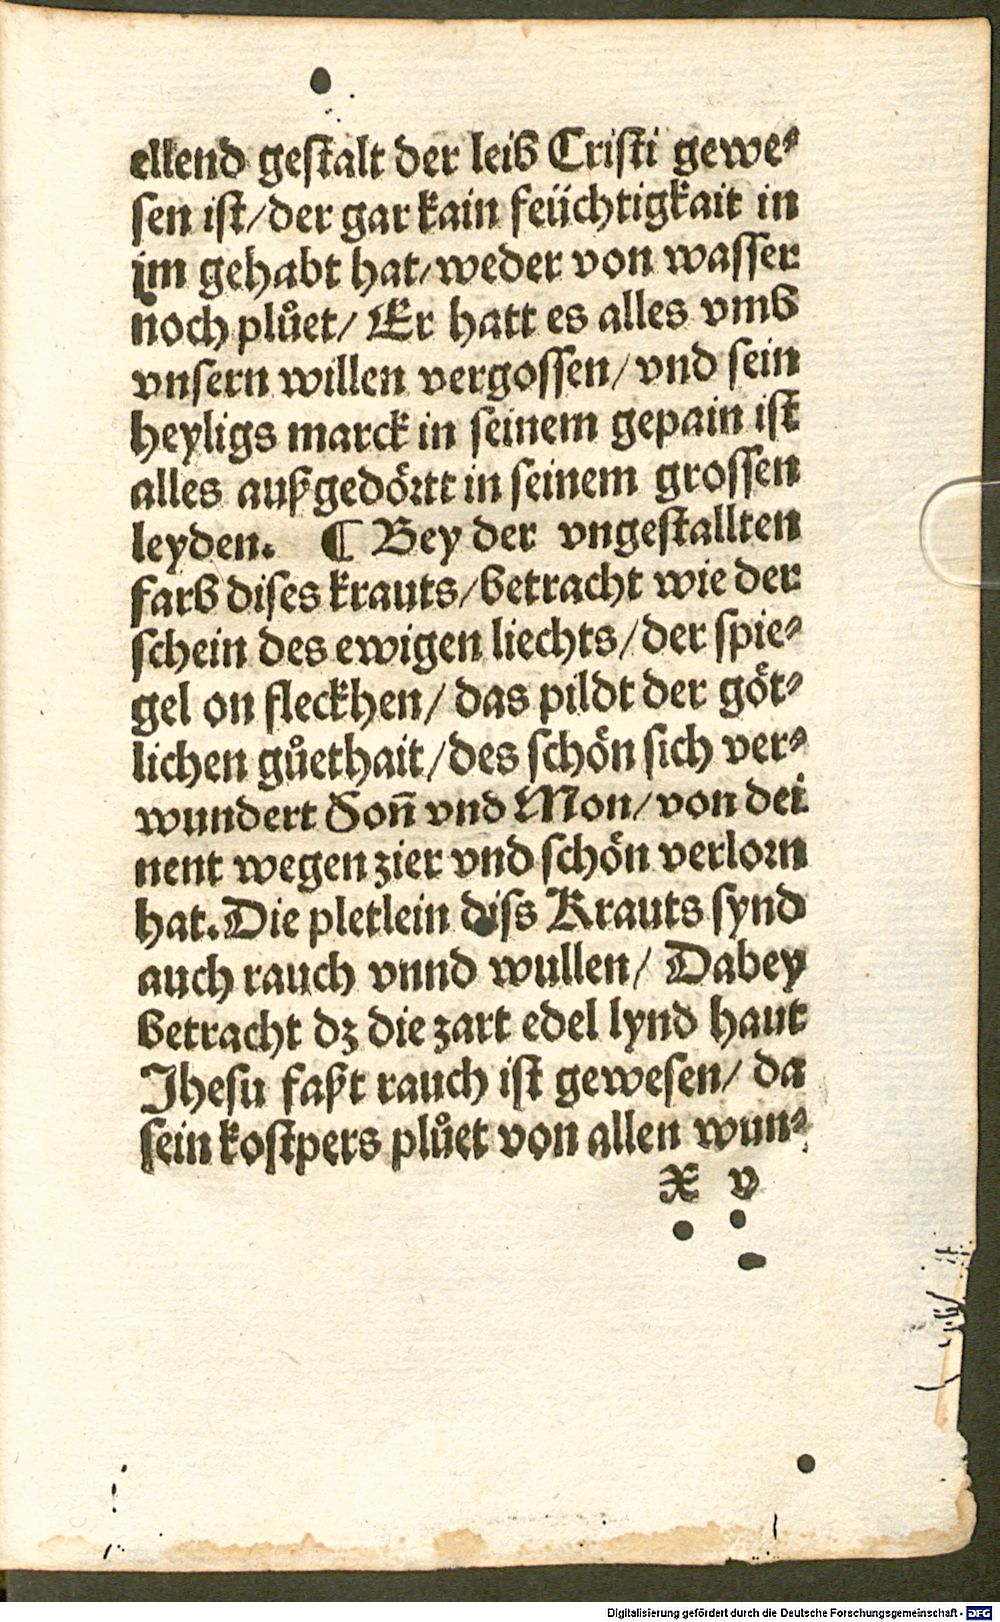 ellend geſtalt der leib Criſti gewe⸗
ſen iſt/ der gar kain feüchtigkait in
im gehabt hat/ weder von waſſer
noch plůet/ Er hatt es alles vmb
vnſern willen vergoſſen/ vnd ſein
heyligs marck in ſeinem gepain iſt
alles außgedörtt in ſeinem groſſen
leyden. ¶ Bey der vngeſtallten
farb diſes krauts/ betracht wie der
ſchein des ewigen liechts/ der ſpie⸗
gel on fleckhen/ das pildt der göt⸗
lichen gůethait/ des ſchön ſich ver⸗
wundert Son̄ vnd Mon/ von dei
nent wegen zier vnd ſchön verlorn
hat. Die pletlein diſs Krauts ſynd
auch rauch vnnd wullen/ Dabey
betracht dz die zart edel lynd haut
Jheſu faßt rauch iſt geweſen/ da
ſein koſtpers plůet von allen wun⸗
x v
Digitalisierung gefördert durch die Deutsche Forschungsgemeinschaft - DFG